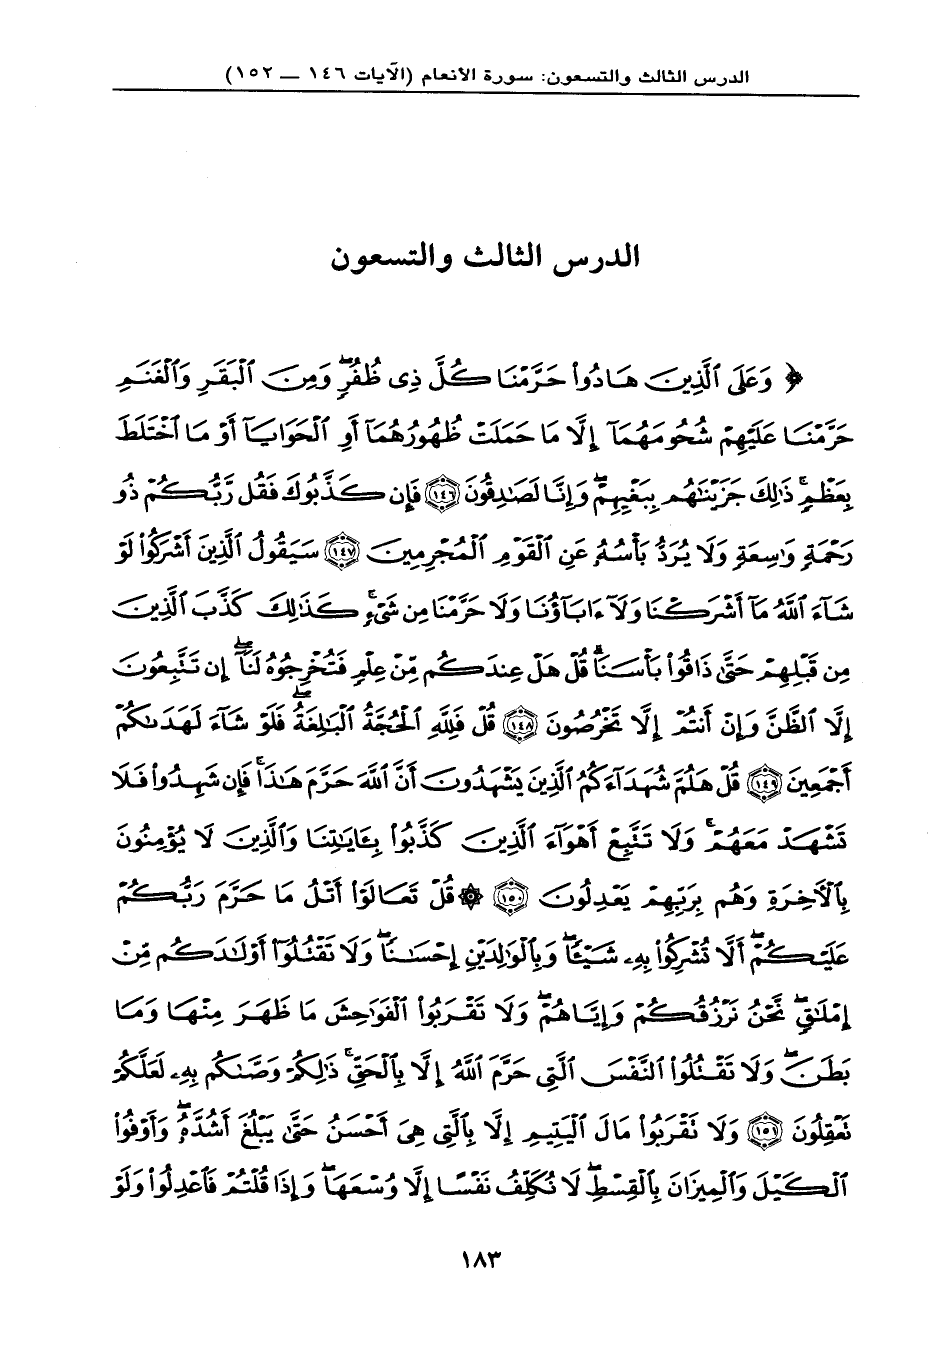 الدرس الثالث والتسعون: سورة الأنعام (الآيات ١٤٦ — ١٥٢)
الدرس الثالث والتسعون
﴿ وَعَلَى ٱلَّذِينَ هَادُوا۟ حَرَّمْنَا كُلَّ ذِى ظُفُرٍۖ وَمِنَ ٱلْبَقَرِ وَٱلْغَنَمِ
حَرَّمْنَا عَلَيْهِمْ شُحُومَهُمَآ إِلَّا مَا حَمَلَتْ ظُهُورُهُمَآ أَوِ ٱلْحَوَايَآ أَوْ مَا ٱخْتَلَطَ
بِعَظْمٍۚ ذَٰلِكَ جَزَيْنَٰهُم بِبَغْيِهِمْۖ وَإِنَّا لَصَٰدِقُونَ ١٤٦ فَإِن كَذَّبُوكَ فَقُل رَّبُّكُمْ ذُو
رَحْمَةٍ وَٰسِعَةٍ وَلَا يُرَدُّ بَأْسُهُۥ عَنِ ٱلْقَوْمِ ٱلْمُجْرِمِينَ ١٤٧ سَيَقُولُ ٱلَّذِينَ أَشْرَكُوا۟ لَوْ
شَآءَ ٱللَّهُ مَآ أَشْرَكْنَا وَلَآ ءَابَآؤُنَا وَلَا حَرَّمْنَا مِن شَىْءٍۚ كَذَٰلِكَ كَذَّبَ ٱلَّذِينَ
مِن قَبْلِهِمْ حَتَّىٰ ذَاقُوا۟ بَأْسَنَاۗ قُلْ هَلْ عِندَكُم مِّنْ عِلْمٍ فَتُخْرِجُوهُ لَنَآۖ إِن تَتَّبِعُونَ
إِلَّا ٱلظَّنَّ وَإِنْ أَنتُمْ إِلَّا تَخْرُصُونَ ١٤٨ قُلْ فَلِلَّهِ ٱلْحُجَّةُ ٱلْبَٰلِغَةُۖ فَلَوْ شَآءَ لَهَدَىٰكُمْ
أَجْمَعِينَ ١٤٩ قُلْ هَلُمَّ شُهَدَآءَكُمُ ٱلَّذِينَ يَشْهَدُونَ أَنَّ ٱللَّهَ حَرَّمَ هَٰذَاۖ فَإِن شَهِدُوا۟ فَلَا
تَشْهَدْ مَعَهُمْۚ وَلَا تَتَّبِعْ أَهْوَآءَ ٱلَّذِينَ كَذَّبُوا۟ بِـَٔايَٰتِنَا وَٱلَّذِينَ لَا يُؤْمِنُونَ
بِٱلْأَخِرَةِ وَهُم بِرَبِّهِمْ يَعْدِلُونَ ١٥٠ ۞ قُلْ تَعَالَوْا۟ أَتْلُ مَا حَرَّمَ رَبُّكُمْ
عَلَيْكُمْۖ أَلَّا تُشْرِكُوا۟ بِهِۦ شَيْـًٔاۖ وَبِٱلْوَٰلِدَيْنِ إِحْسَٰنًاۖ وَلَا تَقْتُلُوٓا۟ أَوْلَٰدَكُم مِّنْ
إِمْلَٰقٍۖ نَّحْنُ نَرْزُقُكُمْ وَإِيَّاهُمْۖ وَلَا تَقْرَبُوا۟ ٱلْفَوَٰحِشَ مَا ظَهَرَ مِنْهَا وَمَا
بَطَنَۖ وَلَا تَقْتُلُوا۟ ٱلنَّفْسَ ٱلَّتِى حَرَّمَ ٱللَّهُ إِلَّا بِٱلْحَقِّۚ ذَٰلِكُمْ وَصَّىٰكُم بِهِۦ لَعَلَّكُمْ
تَعْقِلُونَ ١٥١ وَلَا تَقْرَبُوا۟ مَالَ ٱلْيَتِيمِ إِلَّا بِٱلَّتِى هِىَ أَحْسَنُ حَتَّىٰ يَبْلُغَ أَشُدَّهُۥۖ وَأَوْفُوا۟
ٱلْكَيْلَ وَٱلْمِيزَانَ بِٱلْقِسْطِۖ لَا نُكَلِّفُ نَفْسًا إِلَّا وُسْعَهَاۖ وَإِذَا قُلْتُمْ فَٱعْدِلُوا۟ وَلَوْ
١٨٣